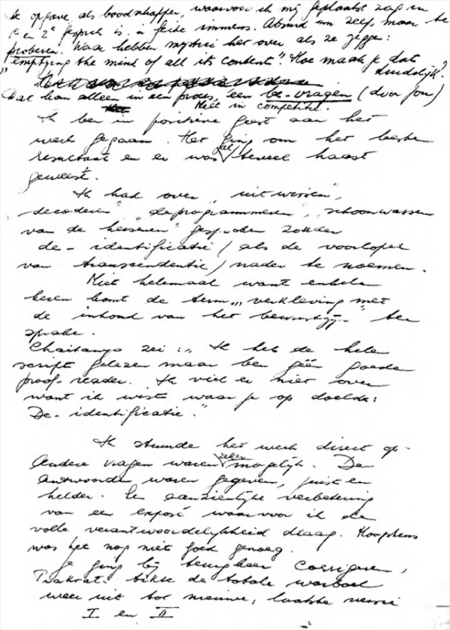 de opgave als boodschapper, waarvoor ik mij geplaatst zag in
2e gesprek is in feite immens. Absurd om zelfs maar te
proberen. Waar hebben mystici het over als ze zeggen:
"emptying the mind of all its content" Hoe maak je dat
duidelijk?
Dat kan alleen in een proces, een be-vragen (door jou)
Niet in competitie.
Ik ben in positieve geest aan het
werk gegaan. Het ging om het beste
resultaat en er was al teveel haast
geweest.
Ik had over "uitwissen",
"decoderen", "deprogrammeren", "schoonwassen
van de hersenen" gesproken zonder
de-identificatie (als de voorloper
van transcendentie) nader te noemen.
Niet helemaal want enkele
keren komt de term "verkleving met
de inhoud van het bewustzijn" ter
sprake.
Chaitanya zei: "Ik heb de hele
script gelezen maar ben géén goede
proof-reader. Ik viel er niet over
want ik wist waar je op doelde:
De-identificatie."
Ik stuurde het werk direct op.
Andere vragen waren zeker mogelijk. De
antwoorden waren gegeven, juist en
helder. Een aanzienlijke verbetering
van een exposé waarvoor ik de
volle verantwoordelijkheid draag.
was het nog niet goed genoeg.
Je ging bij terugkeer corrigeren,
de totale
weer uit tot nieuwe, laatste versie
I en II